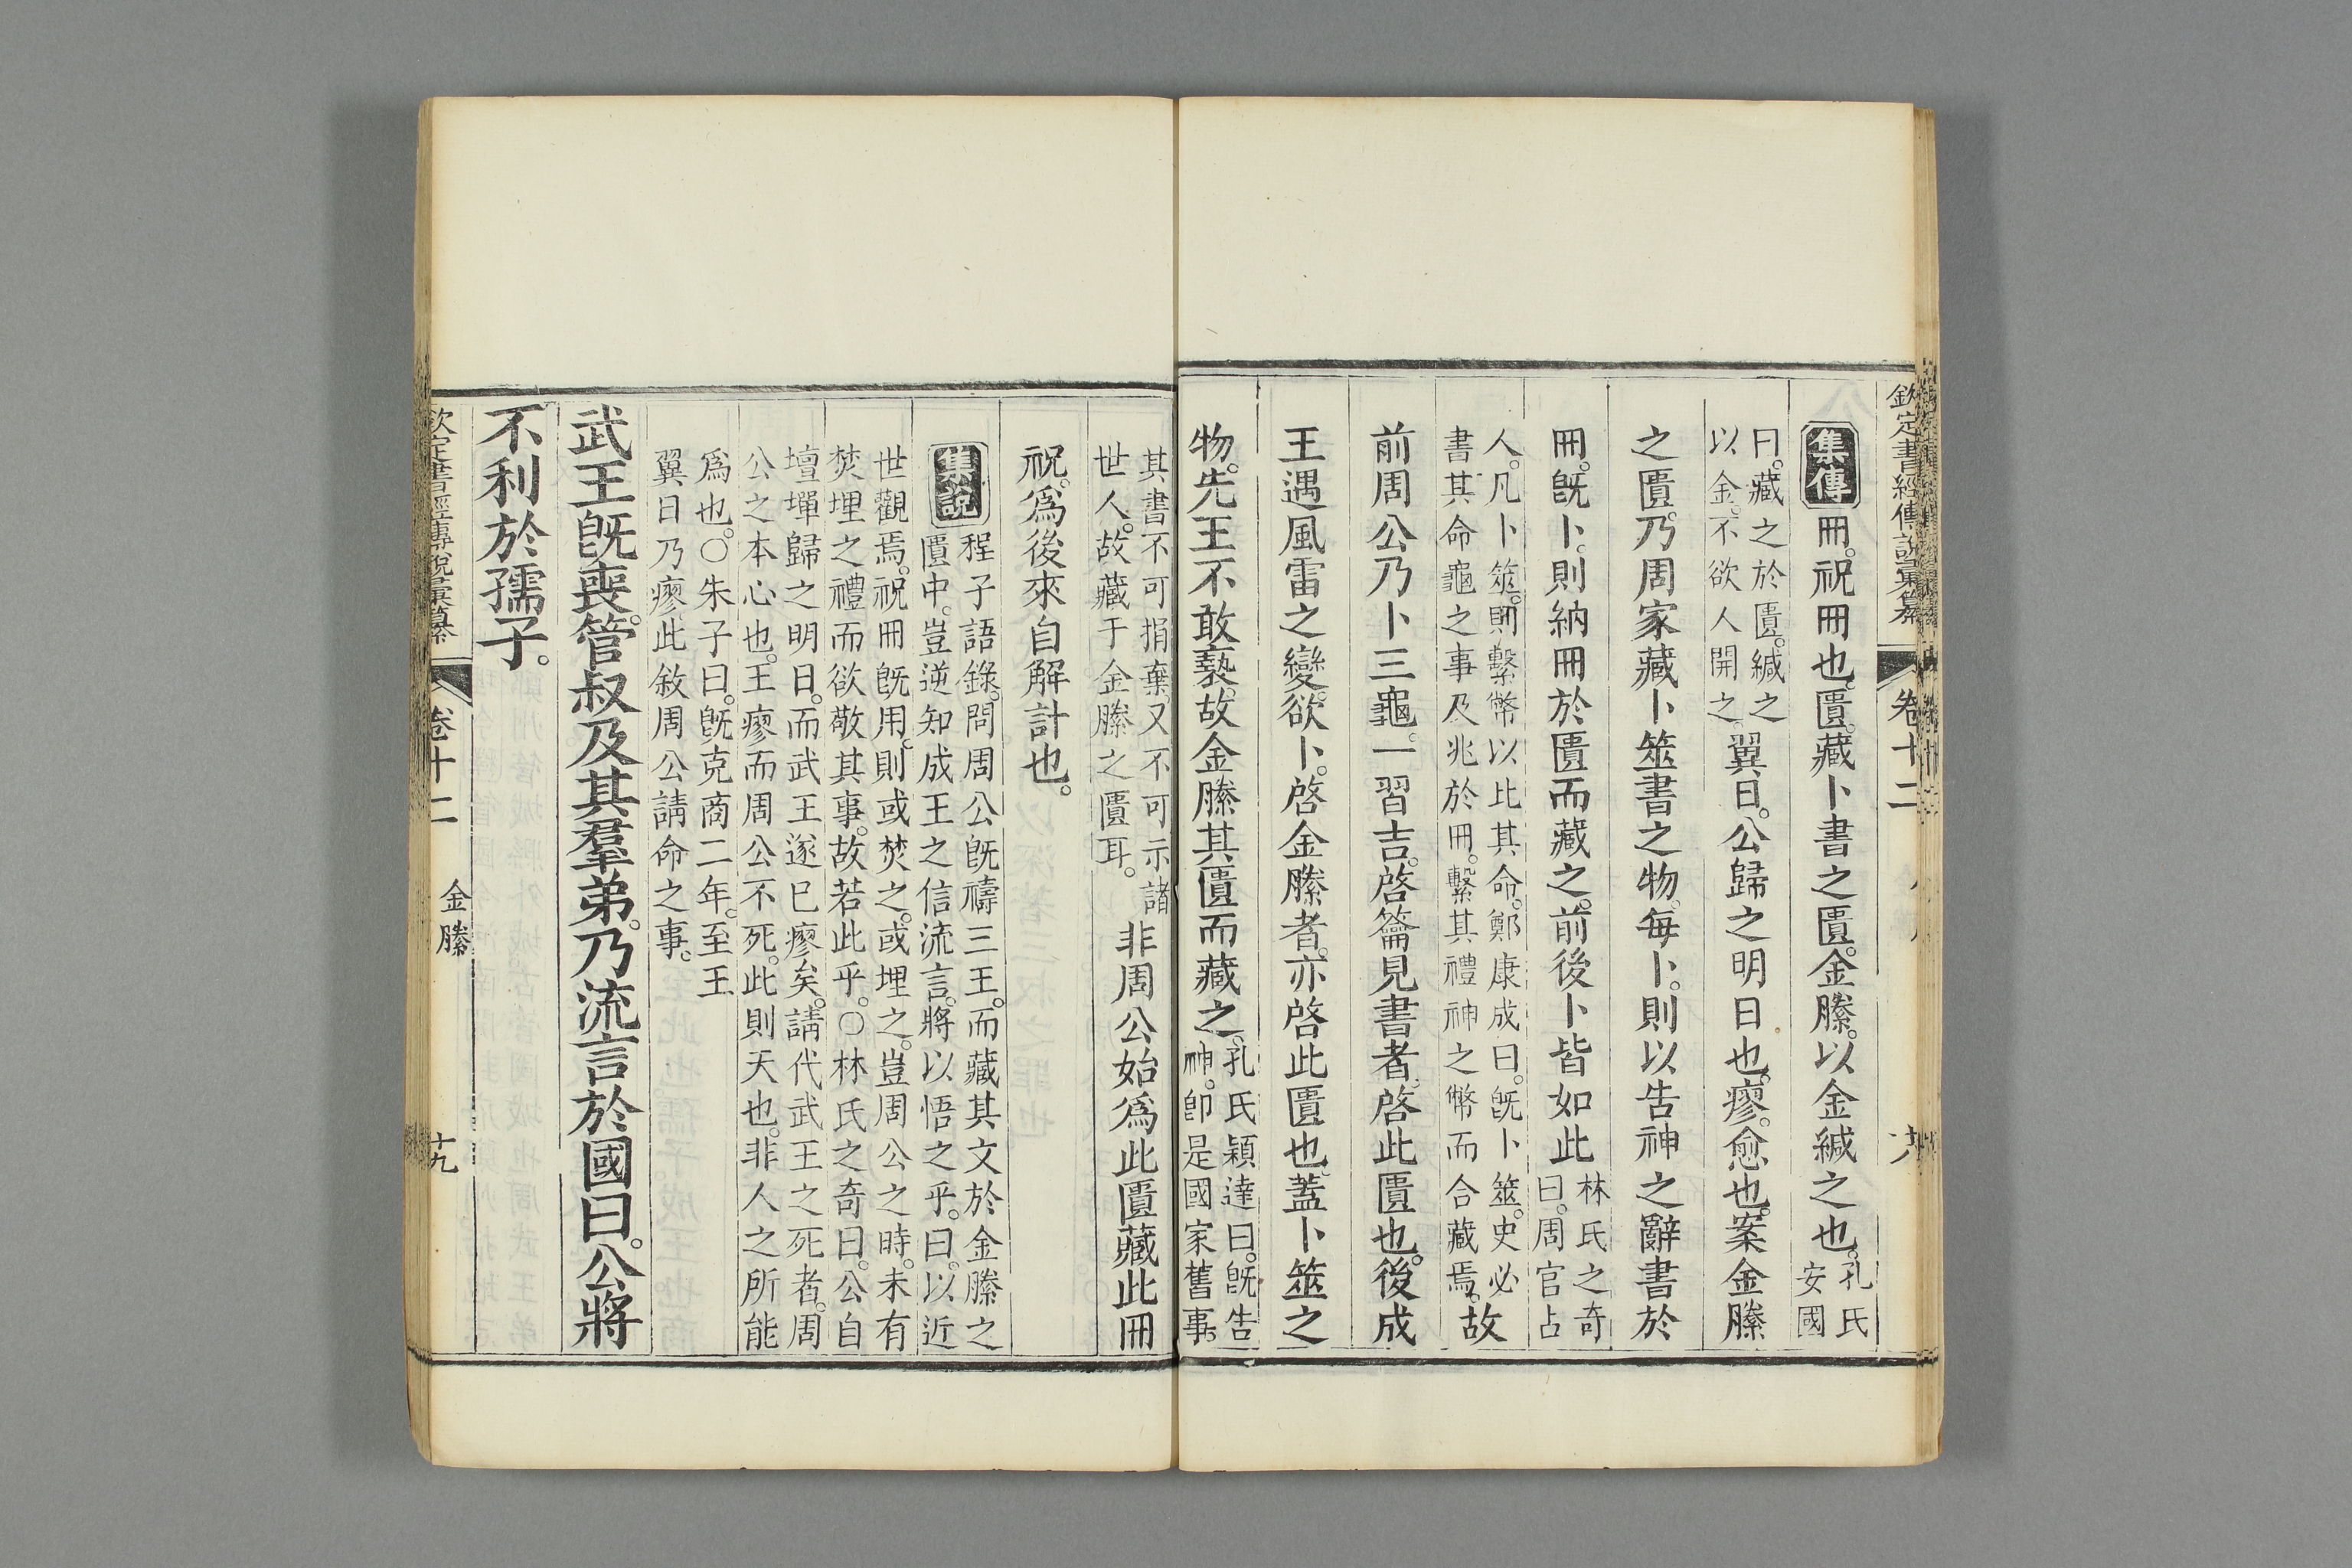 欽定書經傳說彙纂 卷十二
集傳 冊。祝冊也。匱。藏卜書之匱。金縢。以金緘之也。孔氏
安國
曰。藏之於匱。緘之
以金。不欲人開之。翼日。公歸之明日也。瘳。愈也。案金縢
之匱。乃周家藏卜筮書之物。每卜。則以告神之辭書於
冊。旣卜。則納冊於匱而藏之。前後卜皆如此林氏之奇
曰。周官占
人。凡卜筮。則繫幣以比其命。鄭康成曰。旣卜筮。史必
書其命龜之事及兆於冊。繫其禮神之幣而合藏焉。故
前周公乃卜三龜。一習吉。啓籥見書者。啓此匱也。後成
王遇風雷之變。欲卜。啓金縢者。亦啓此匱也。蓋卜筮之
物。先王不敢褻。故金縢其匱而藏之。孔氏穎達曰。旣告
神。卽是國家舊事。
其書不可捐棄。又不可示諸
世人。故藏于金縢之匱耳。非周公始爲此匱藏此冊
祝。爲後來自解計也。
集說 程子語錄。問周公旣禱三王。而藏其文於金縢之
匱中。豈逆知成王之信流言。將以悟之乎。曰。以近
世觀焉。祝冊旣用。則或焚之。或埋之。豈周公之時。未有
焚埋之禮而欲敬其事。故若此乎。○林氏之奇曰。公自
壇墠歸之明日。而武王遂已瘳矣。請代武王之死者。周
公之本心也。王瘳而周公不死。此則天也。非人之所能
爲也。○朱子曰。旣克商二年。至王
翼日乃瘳此敘周公請命之事。
武王旣喪。管叔及其羣弟。乃流言於國曰。公將
不利於孺子。
欽定書經傳說彙纂 卷十二 金縢 十九